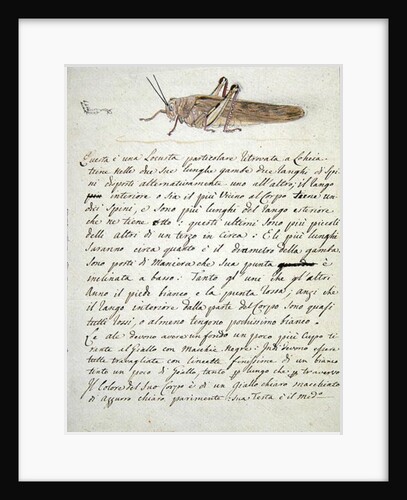 Questa è una Locusta particolare ritrovata a Loheia
tiene nelle due sue lunghe gambe due ranghi di Spi
ni disposti alternativamente uno all'altro; il rango
interiore o sia il più Vicino al Corpo tiene un
dici Spini, e sono più lunghi del rango esteriore
che ne tiene otto: questi ultimi sono più piccoli
delli altri di un terzo in circa: E li più lunghi
Saranno circa quarto è il diametro della gamba
Sono posti di Maniera che Sua punta è
inclinata a basso: Tanto gl'uni che gl'altri
Anno il piede bianco e la punta rossa; anzi che
il rango interiore dalla parte del Corpo Sono quasi
tutti rossi, o almeno tengono pochissimo bianco:
Le ale devono avere un fondo un poco più Cupo ti
rante al Giallo con Macchie Negre: Indi devono essere
tutte travagliate con lineette finissime di un bianco
tente un poco di Giallo, tanto p lungo che p traverso
Il Colore del Suo Corpo è di un giallo chiaro macchiato
di azzurro chiaro parimente: sua Testa è il med.o